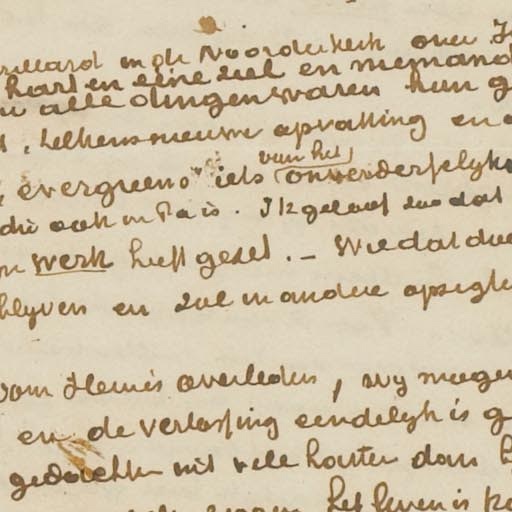 in de Noorderkerk over
hart en eene ziel en niemand
alle dingen waren hun g
telkens nieuwe opvatting en
evergreens" iets van het onverderfelyke
die ook in Pa is. Ik geloof zoo dat
werk heeft gezet. – Wie dat doe
blyven en zal in andere opzigte
oom Hemis overleden, wy moogen
en de verlossing eendelyk is g
gedachten uit vele harten dan
het leven is